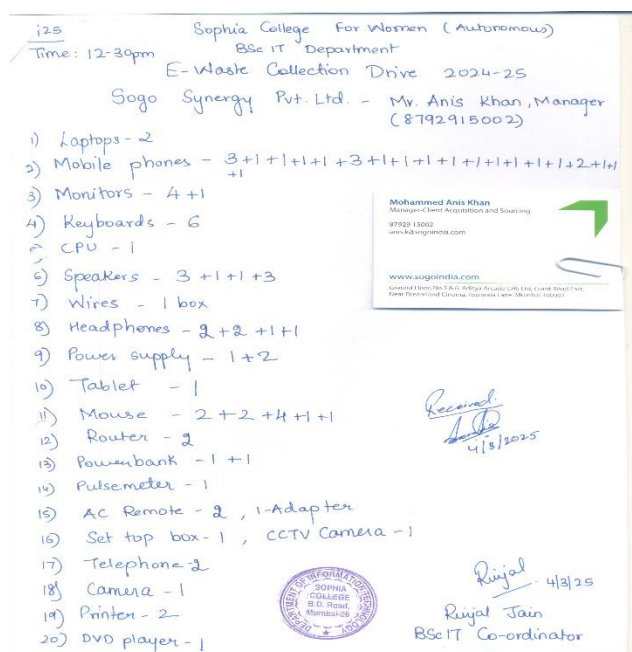 i25
Sophia College For Women (Autonomous)
Time: 12-30pm
BSc IT Department
E-Waste Collection Drive 2024-25
Sogo Synergy Pvt. Ltd. - Mr. Anis Khan, Manager
(8792915002)
1) Laptops - 2
2) Mobile phones - 3+1+1+1+1+3+1+1+1+1+1+1+1+1+1+2+1+1
+1
3) Monitors - 4 +1
4) Keyboards - 6
CPU - 1
6) Speakers - 3 +1 +1 +3
7) Wires - 1 box
8) Headphones - 2+2 +1+1
9) Power supply - 1+2
10) Tablet - 1
11) Mouse - 2 +2 +4 +1 +1
12) Router - 2
13) Powerbank - 1 +1
14) Pulsemeter - 1
15) AC Remote - 2 , 1-Adapter
16) Set top box - 1 , CCTV Camera - 1
17) Telephone - 2
18) Camera - 1
19) Printer - 2
20) DVD player - 1
Mohammed Anis Khan
Manager-Client Acquisition and Sourcing
87929 15002
anis.k@sogoindia.com
www.sogoindia.com
Near Dreamland Cinema,
Received.
4/3/2025
DEPARTMENT OF INFORMATION TECHNOLOGY
SOPHIA
COLLEGE
B.D. Road,
Mumbai-26
Rinjal 4/3/25
Rinjal Jain
BSc IT Co-ordinator